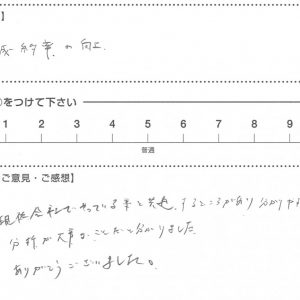 】
成約率の向上
○をつけて下さい
1 2 3 4 5 6 7 8 9
普通
ご意見・ご感想】
現在会社でやっている事と共通するところがあり分かりやす
分析が大事なことだと分かりました
ありがとうございました。